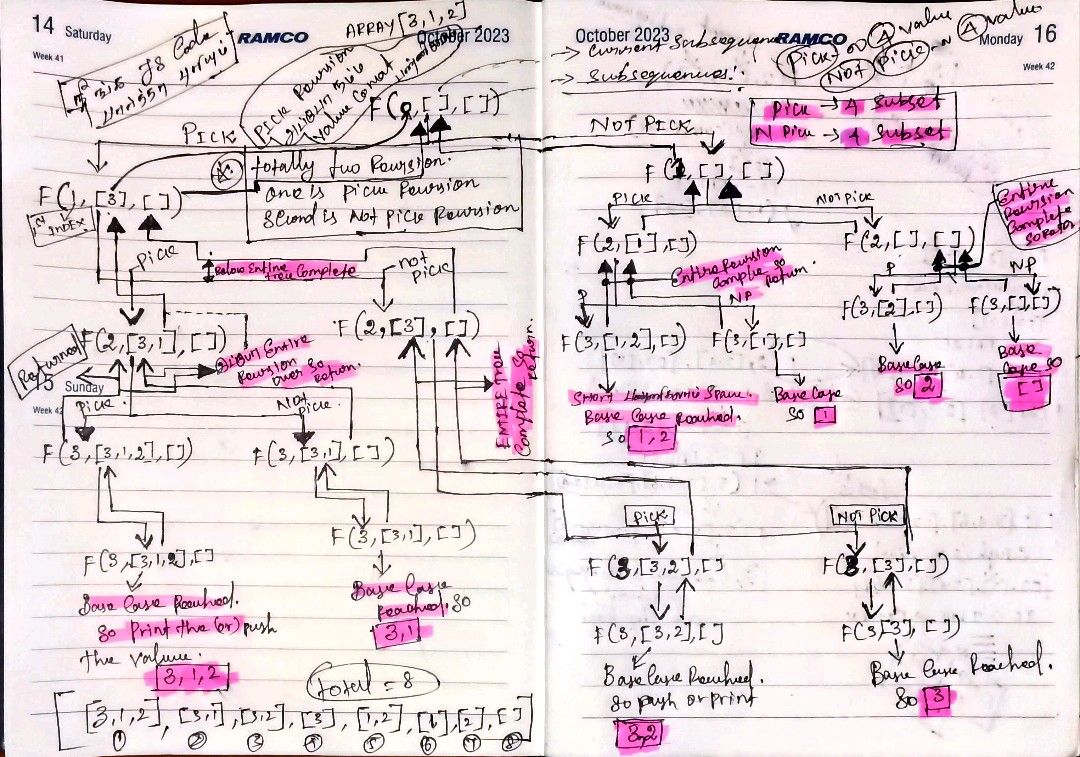 14 Saturday
Week 41
RAMCO
October 2023
ARRAY [3,1,2]
JS Code
PICK Recursion
value
F(0,[],[])
PICK
totally two Recursion.
one is Pick Recursion
Second is Not Pick Recursion
F(1,[3],[])
INDEX
Pick
Below Entire
tree Complete
not
pick
F(2,[3,1],[])
F(2,[3],[])
Returned
Entire
Recursion
over so
Return.
ENTIRE Tree
Complete so
return.
15 Sunday
Week 42
Pick
Not
Pick
F(3,[3,1,2],[])
F(3,[3,1],[])
F(3,[3,1,2],[]
F(3,[3,1],[])
Base Case Reached.
So Print the (or) push
the value.
3,1,2
Base Case
Reached. So
3,1
Total = 8
[[3,1,2], [3,1], [3,2], [3], [1,2], [1], [2], []]
① ② ③ ④ ⑤ ⑥ ⑦ ⑧
October 2023
RAMCO
Monday 16
Week 42
→ Current Subsequence
→ Subsequences!
Pick 4 value
Not Pick 4 value
Pick → 4 Subset
N Pick → 4 Subset
NOT PICK
F(1,[],[])
Pick
NOT Pick
Entire
Recursion
Complete
So Return
F(2,[1],[])
F(2,[],[])
Entire Recursion
Complete so
return.
P
NP
P
NP
F(3,[1,2],[])
F(3,[1],[])
F(3,[2],[])
F(3,[],[])
Short
Base Case Reached.
So 1,2
Base Case
So 1
Base Case
So 2
Base
Case So
[]
PICK
NOT PICK
F(3,[3,2],[]
F(3,[3],[])
F(3,[3,2],[]
F(3,[3],[])
Base Case Reached.
So push or Print
3,2
Base Case Reached.
So 3